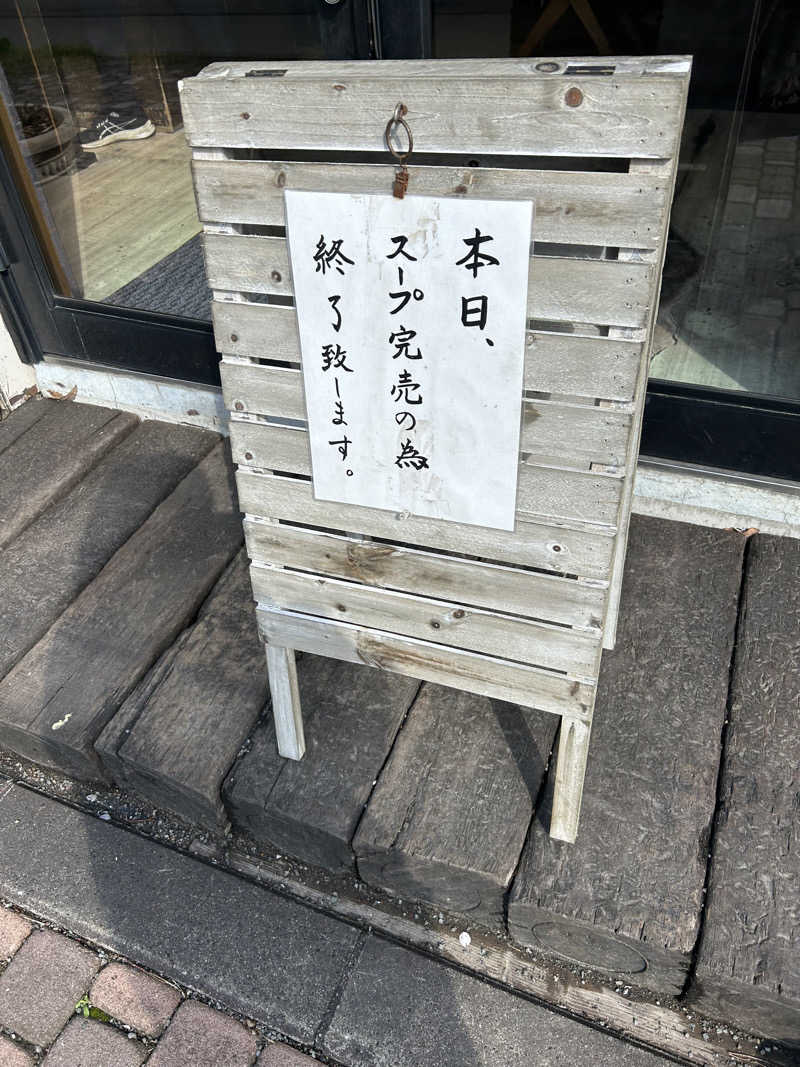 本日、
スープ完売の為
終了致します。